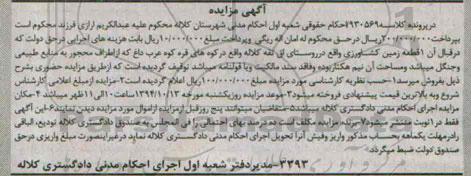 آگهی مزایده
درپرونده کلاسه ۹۳۰۵۶۹ احکام حقوقی شعبه اول احکام مدنی شهرستان کلاله محکوم علیه عبدالکریم ارازی فرزند محکوم است
بپرداخت ۲۰۰/۰۰۰/۰۰۰ ریال درحق محکوم له امان اله ریگی وپرداخت مبلغ ۱۰/۰۰۰/۰۰۰ ریال بابت هزینه های اجرایی درحق دولت که
درقبال آن ۱ قطعه زمین کشاورزی واقع درروستای کلاله واقع درکوه های قره کوه عرب داغ که ازاطراف محجور به منابع طبیعی
وجنگل میباشد ومساحت آن نیم هکتاربوده وفاقد سند مالکیت ویا قولنامه میباشد توقیف گردیده است که ازطریق مزایده حضوری بشرح
ذیل بفروش میرسد ۱-حسب نظریه کارشناسی مورد مزایده مبلغ ۱۰۰/۰۰۰/۰۰۰ ریال اعلام گردیده است ۲-مزایده ازمبلغ اعلامی کارشناس
شروع وبه بالاترین قیمت پیشنهادی فروخته میشود ۳-موعد مزایده روزیکشنبه مورخه ۱۳۹۴/۱۰/۱۳ ساعت ۱۰ الی ۱۱ ظهر میباشد ۴-مکان
مزایده اجرای احکام مدنی دادگستری کلاله میباشد ۵-متقاضیان میتوانند پنج روزقبل ازمزایده ازاموال مورد مزایده دیدن نمایند ۶-این آگهی
فقط در ۱ نوبت منتشر میشود ۷-برنده مزایده مکلف است ده درصد بهای احتمالی را فی المجلس به صندوق دادگستری کلاله تودیع، الباقی
رادرمهلت یکماهه بحساب مذکور واریز وفیش آنرا تحویل اجرای احکام مدنی دادگستری کلاله نماید درغیراینصورت مبلغ واریزی درحق
صندوق دولت ضبط میگردد.
۳۲۹۳-مدیردفتر شعبه اول اجرای احکام مدنی دادگستری کلاله